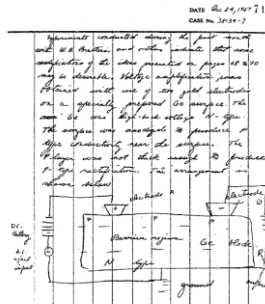 DATE Dec 24, 1947 71
CASE No. 38139-7
Experiments conducted during the past month
with W.H. Brattain and others indicate that some
modifications of the ideas presented on pages 68 & 70
may be desirable. Voltage amplification was
obtained with use of two gold electrodes
on a specially prepared Ge surface. The
Ge was high-back-voltage N-type.
The surface was anodized to produce P
type conductivity near the surface. The
P-layer was not thick enough to produce
P-type rectification. The arrangement is
shown below
electrode A
electrode
D.C. Battery
A.C. input
P
P
P
Barrier region
Ge block
N type
R
ground